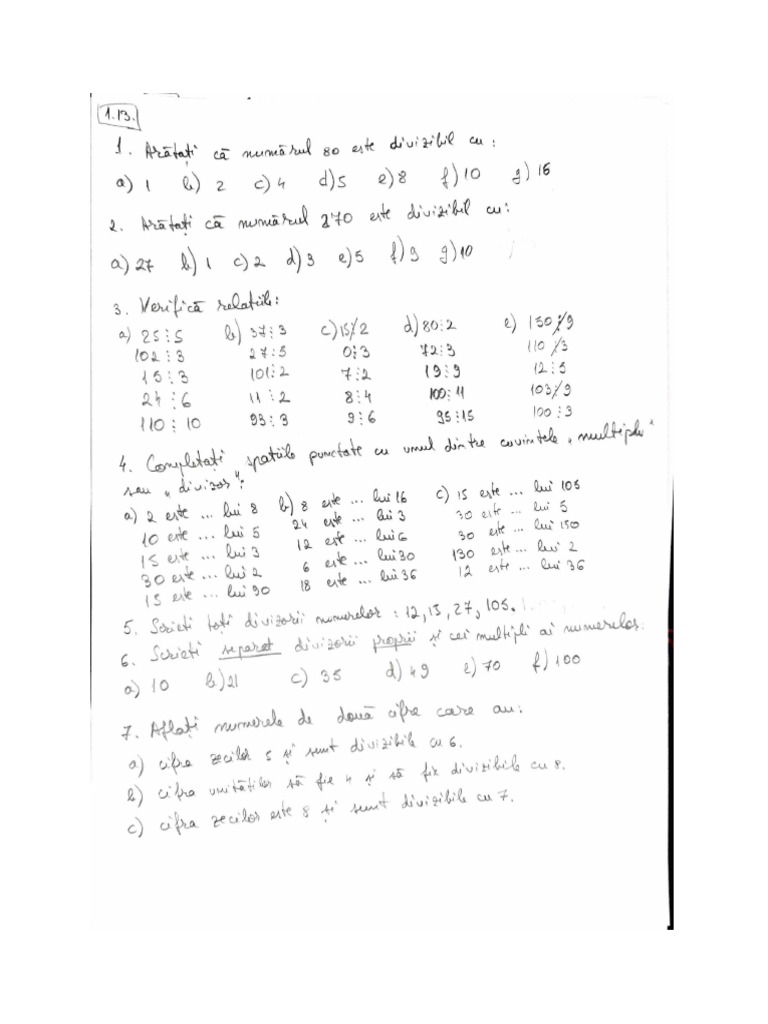 1.13.
1. Arătați că numărul 80 este divizibil cu:
a) 1 b) 2 c) 4 d) 5 e) 8 f) 10 g) 16
2. Arătați că numărul 270 este divizibil cu:
a) 27 b) 1 c) 2 d) 3 e) 5 f) 9 g) 10
3. Verifică relațiile:
a) 25⋮5 b) 37⋮3 c) 15⋮̸2 d) 80⋮2 e) 150⋮̸9
102⋮3 27⋮5 0⋮3 72⋮3 110⋮̸3
15⋮3 101⋮2 7⋮2 19⋮9 12⋮5
24⋮6 11⋮2 8⋮4 100⋮11 103⋮̸9
110⋮10 93⋮3 9⋮6 95⋮15 100⋮3
4. Completați spațiile punctate cu unul dintre cuvintele „multiplu"
sau „divizor":
a) 2 este ... lui 8 b) 8 este ... lui 16 c) 15 este ... lui 105
10 este ... lui 5 24 este ... lui 3 30 este ... lui 5
15 este ... lui 3 12 este ... lui 6 30 este ... lui 150
30 este ... lui 2 6 este ... lui 30 130 este ... lui 2
15 este ... lui 90 18 este ... lui 36 12 este ... lui 36
5. Scrieți toți divizorii numerelor: 12, 15, 27, 105.
6. Scrieți separat divizorii proprii și cei multipli ai numerelor:
a) 10 b) 21 c) 35 d) 49 e) 70 f) 100
7. Aflați numerele de două cifre care au:
a) cifra zecilor 5 și sunt divizibile cu 6.
b) cifra unităților să fie 4 și să fie divizibile cu 8.
c) cifra zecilor este 8 și sunt divizibile cu 7.